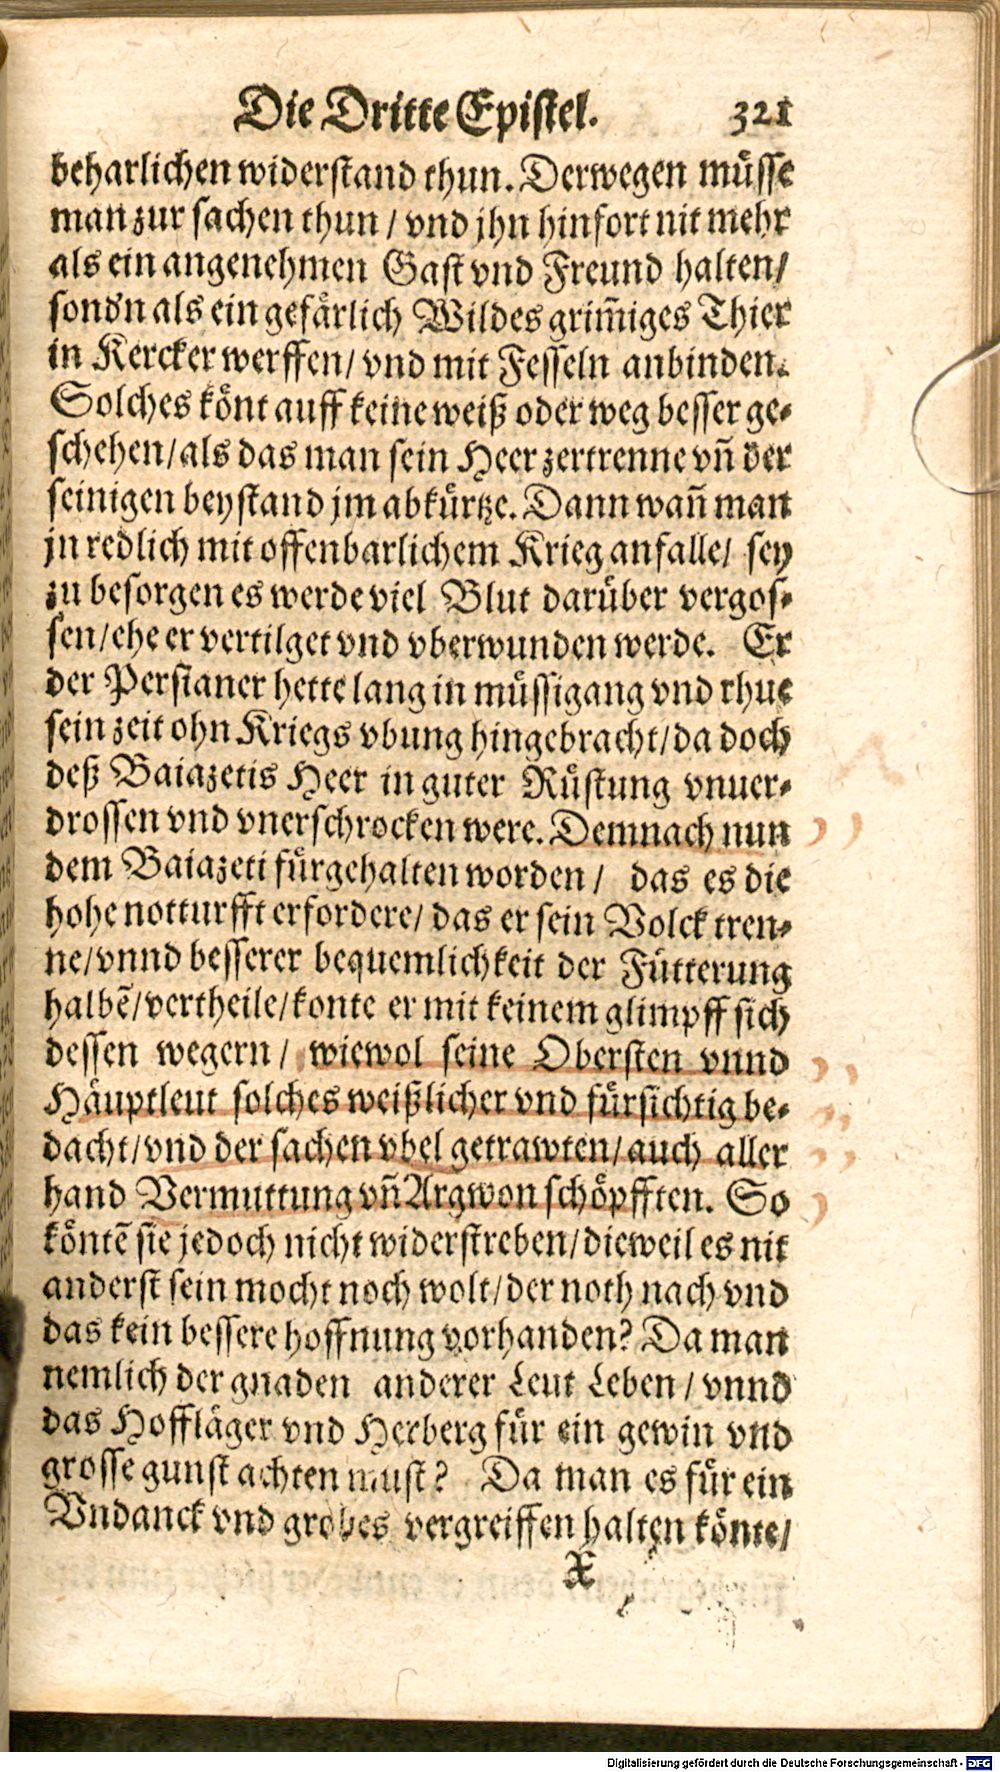 Die Dritte Epistel. 321
beharlichen widerstand thun. Derwegen müsse
man zur sachen thun / vnd jhn hinfort nit mehr
als ein angenehmen Gast vnd Freund halten/
sondn als ein gefärlich Wildes grim̃iges Thier
in Kercker werffen/ vnd mit Fesseln anbinden.
Solches könt auff keine weiß oder weg besser ge-
schehen/als das man sein Heer zertrenne vñ der
seinigen beystand jm abkürtze. Dann wañ man
jn redlich mit offenbarlichem Krieg anfalle/ sey
zu besorgen es werde viel Blut darüber vergos-
sen/ehe er vertilget vnd vberwunden werde. Er
der Persianer hette lang in müssigang vnd rhue
sein zeit ohn Kriegs vbung hingebracht/da doch
deß Baiazetis Heer in guter Rüstung vnuer-
drossen vnd vnerschrocken were. Demnach nun
dem Baiazeti fürgehalten worden / das es die
hohe notturfft erfordere/ das er sein Volck tren-
ne/vnnd besserer bequemlichkeit der Fütterung
halbẽ/vertheile/konte er mit keinem glimpff sich
dessen wegern/ wiewol seine Obersten vnnd
Häuptleut solches weißlicher vnd fürsichtig be-
dacht/vnd der sachen vbel getrawten/auch aller
hand Vermuttung vñ Argwon schöpfften. So
köntẽ sie jedoch nicht widerstreben/dieweil es nit
anderst sein mocht noch wolt/der noth nach vnd
das kein bessere hoffnung vorhanden? Da man
nemlich der gnaden anderer Leut Leben / vnnd
das Hoffläger vnd Herberg für ein gewin vnd
grosse gunst achten must? Da man es für ein
Vndanck vnd grobes vergreiffen halten könte/
X
Digitalisierung gefördert durch die Deutsche Forschungsgemeinschaft - DFG